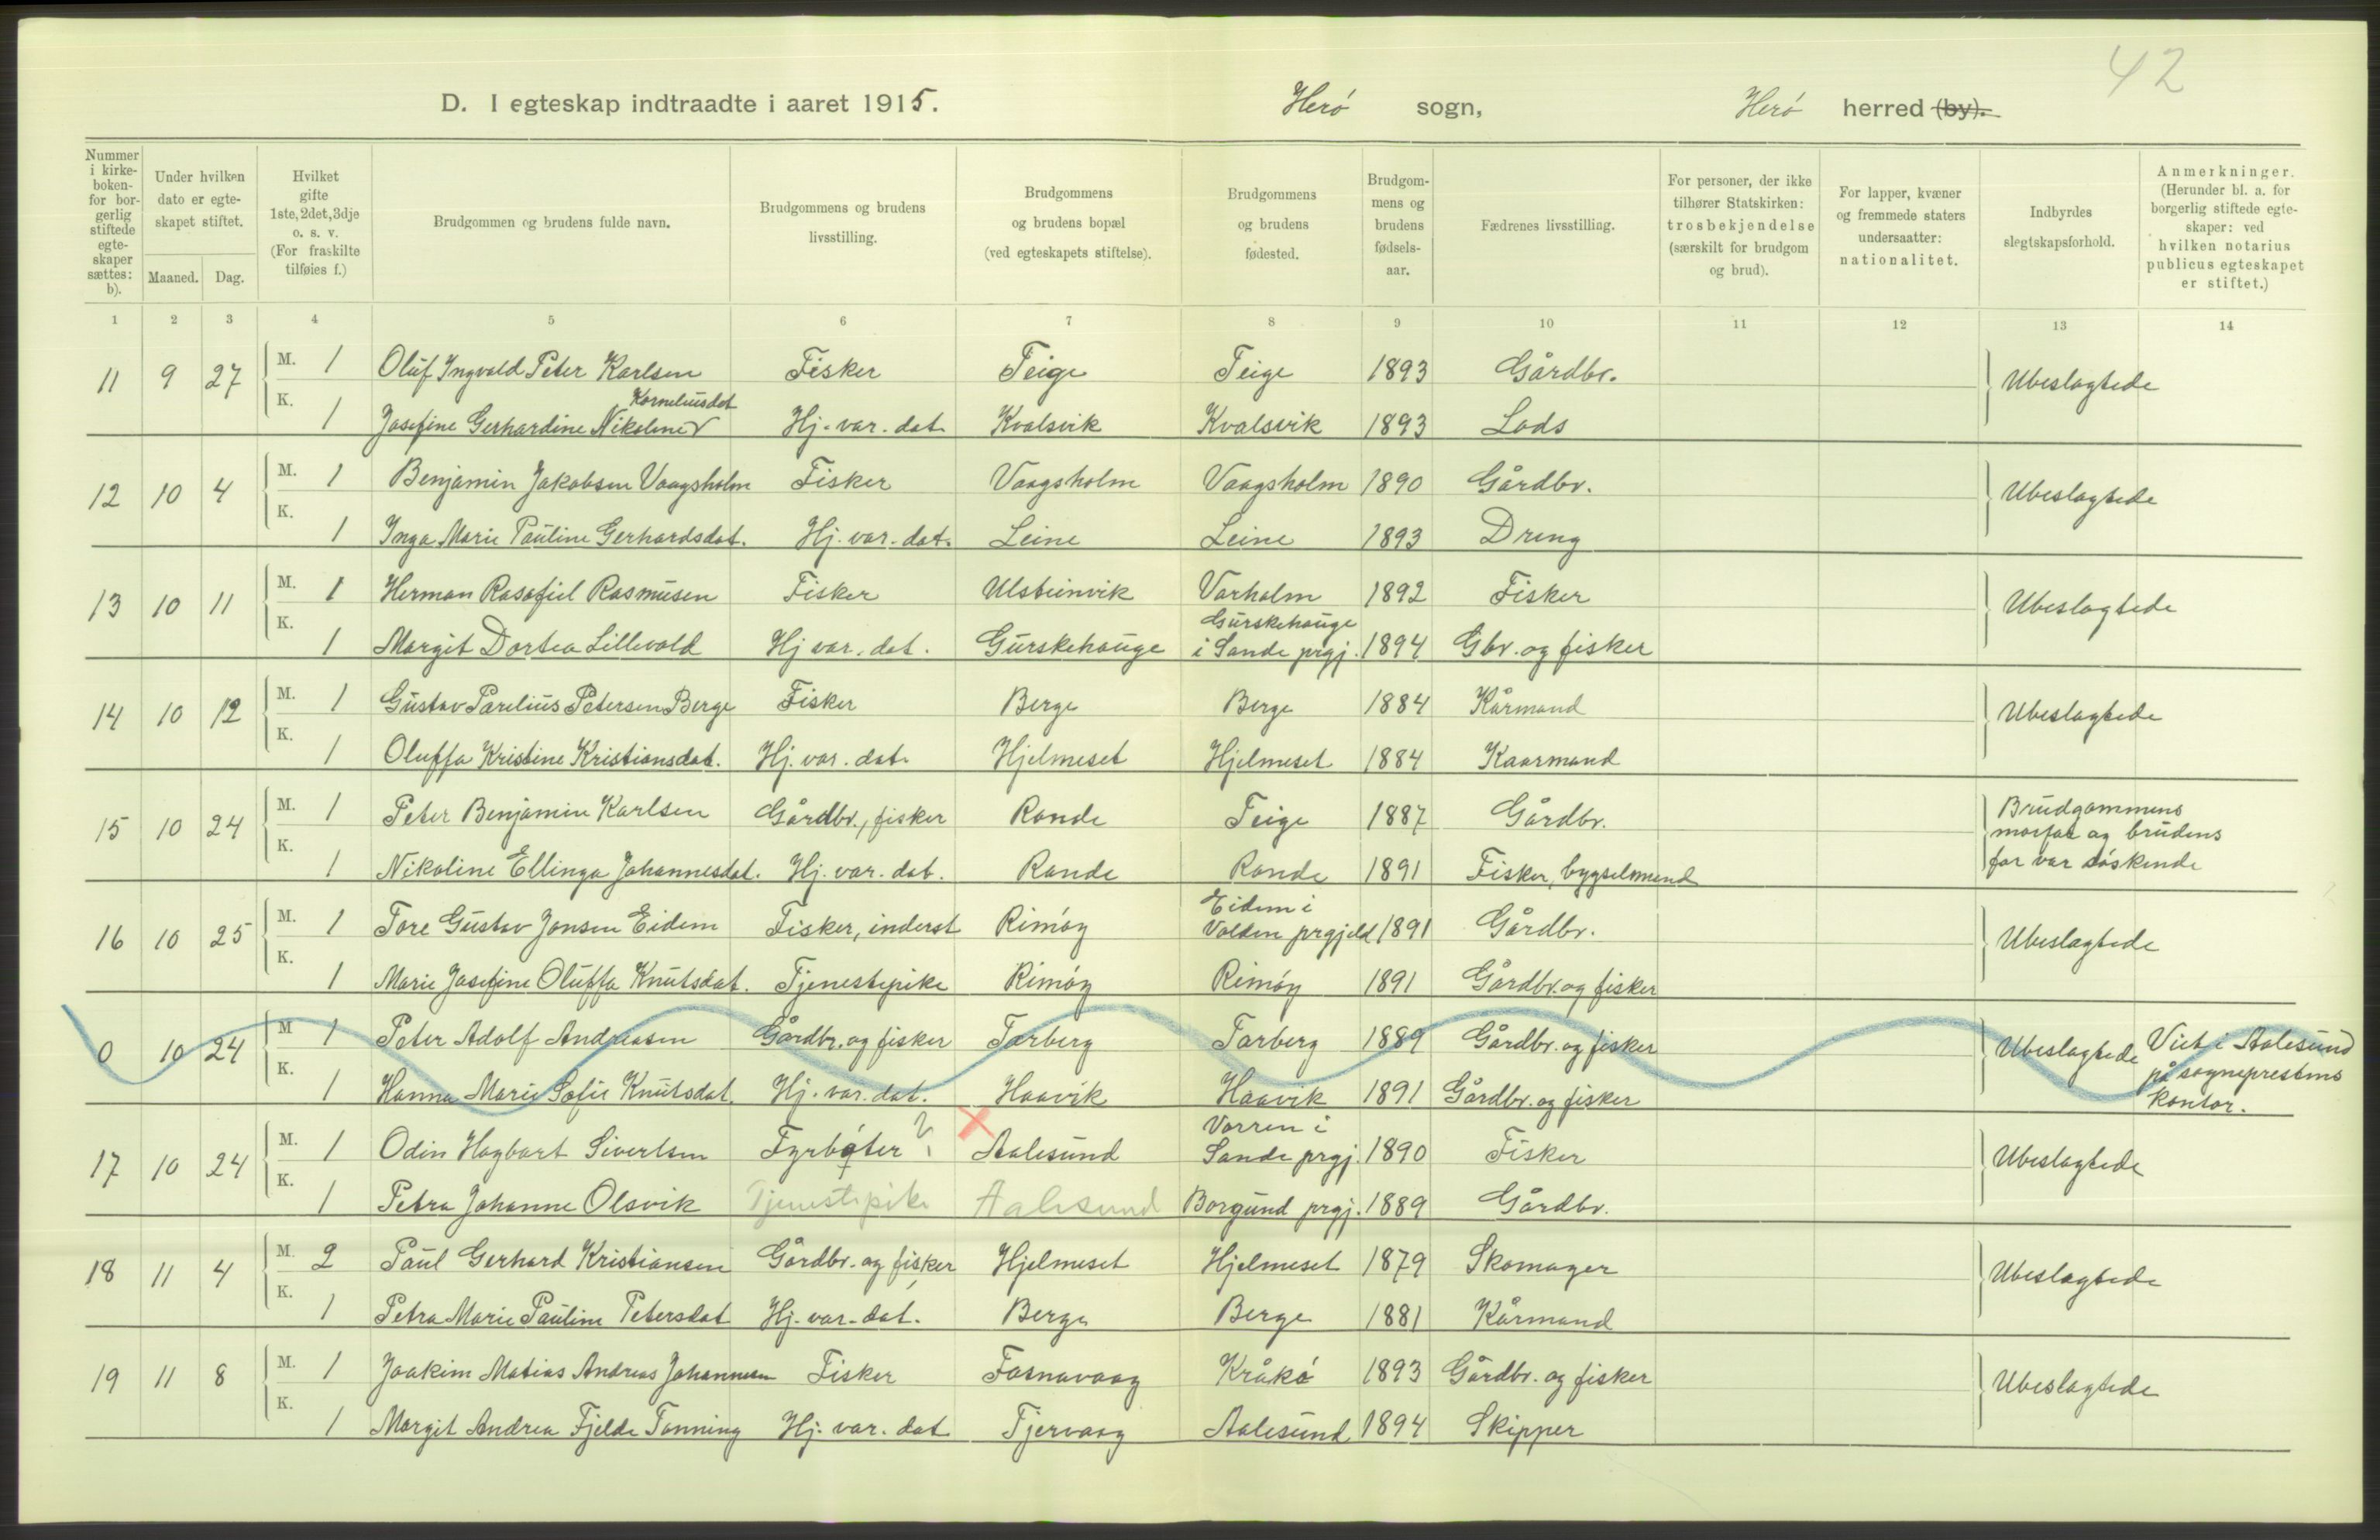 42
D. I egteskap indtraadte i aaret 1915. Herø sogn, Herø herred (by).
Nummer i kirkeboken- for borgerlig stiftede egteskaper sættes: b).
Under hvilken dato er egteskapet stiftet.
Maaned. Dag.
Hvilket gifte 1ste, 2det, 3dje o. s. v. (For fraskilte tilføies f.)
Brudgommen og brudens fulde navn.
Brudgommens og brudens livsstilling.
Brudgommens og brudens bopæl (ved egteskapets stiftelse).
Brudgommens og brudens fødested.
Brudgommens og brudens fødselsaar.
Fædrenes livsstilling.
For personer, der ikke tilhører Statskirken: trosbekjendelse (særskilt for brudgom og brud).
For lapper, kvæner og fremmede staters undersaatter: nationalitet.
Indbyrdes slegtskapsforhold.
Anmerkninger. (Herunder bl. a. for borgerlig stiftede egteskaper: ved hvilken notarius publicus egteskapet er stiftet.)
1 2 3 4 5 6 7 8 9 10 11 12 13 14
11 9 27 M. 1 Oluf Ingvald Peter Karlsen Fisker Teige Teige 1893 Gårdbr. Ubeslagtede
Korneliusdat
K. 1 Josefine Gerhardine Nikoline Hj. var. dat. Kvalsvik Kvalsvik 1893 Lods
12 10 4 M. 1 Benjamin Jakobsen Vaagsholm Fisker Vaagsholm Vaagsholm 1890 Gårdbr. Ubeslagtede
K. 1 Inga Marie Pauline Gerhardsdat. Hj. var. dat. Leine Leine 1893 Dreng
13 10 11 M. 1 Herman Rasafiel Rasmusen Fisker Ulsteinvik Varholm 1892 Fisker Ubeslagtede
K. 1 Margit Dortea Lillevold Hj var. dat. Gurskehauge Gurskehauge i Sande prgj. 1894 Gbr. og fisker
14 10 12 M. 1 Gustav Parelius Petersen Berge Fisker Berge Berge 1884 Kårmand Ubeslagtede
K. 1 Oluffa Kristine Kristiansdat. Hj. var. dat. Hjelmeset Hjelmeset 1884 Kaarmand
15 10 24 M. 1 Peter Benjamin Karlsen Gårdbr., fisker Rande Teige 1887 Gårdbr. Brudgommens
morfar og brudens
K. 1 Nikoline Ellinga Johannesdat. Hj. var. dat. Rande Rande 1891 Fisker, bygselmand far var søskende
16 10 25 M. 1 Tore Gustav Jonsen Eidem Fisker, inderst Rimøy Eidem i Volden prgjeld 1891 Gårdbr. Ubeslagtede
K. 1 Marie Josefine Oluffa Knutsdat. Tjenestepike Rimøy Rimøy 1891 Gårdbr. og fisker
0 10 24 M 1 Peter Adolf Andreasen Gårdbr. og fisker Tarberg Tarberg 1889 Gårdbr. og fisker Ubeslagtede Viet i Aalesund
på sogneprestens
K. 1 Hanna Marie Sofie Knutsdat. Hj. var. dat. Haavik Haavik 1891 Gårdbr. og fisker kontor.
17 10 24 M. 1 Odin Hagbart Sivertsen Fyrbøter ? Aalesund Vorren i Sande prgj. 1890 Fisker Ubeslagtede
K. 1 Petra Johanne Olsvik Tjenestepike Aalesund Borgund prgj. 1889 Gårdbr.
18 11 4 M. 2 Paul Gerhard Kristiansen Gårdbr. og fisker Hjelmeset Hjelmeset 1879 Skomager Ubeslagtede
K. 1 Petra Marie Pauline Petersdat Hj. var. dat. Berge Berge 1881 Kårmand
19 11 8 M. 1 Joakim Matias Andreas Johannesen Fisker Fosnavaag Kråkø 1893 Gårdbr. og fisker Ubeslagtede
K. 1 Margit Andrea Fjelde Tonning Hj. var. dat Tjervaag Aalesund 1894 Skipper